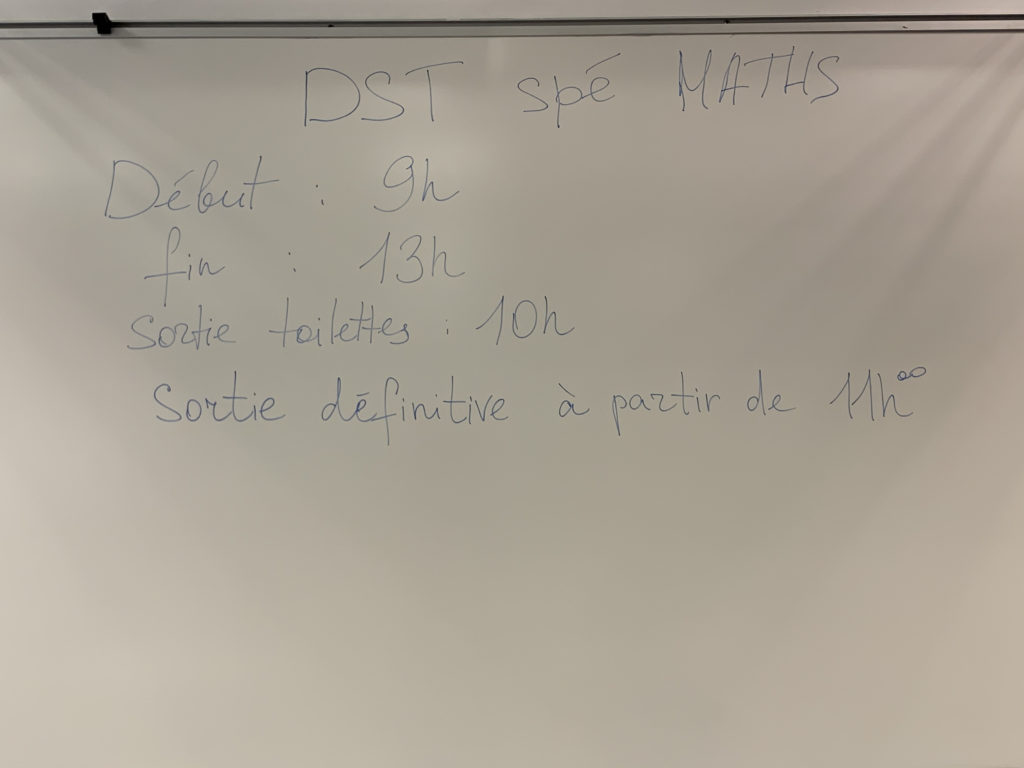 DST spé MATHS
Début : 9h
fin : 13h
Sortie toilettes : 10h
Sortie définitive à partir de 11h⁰⁰